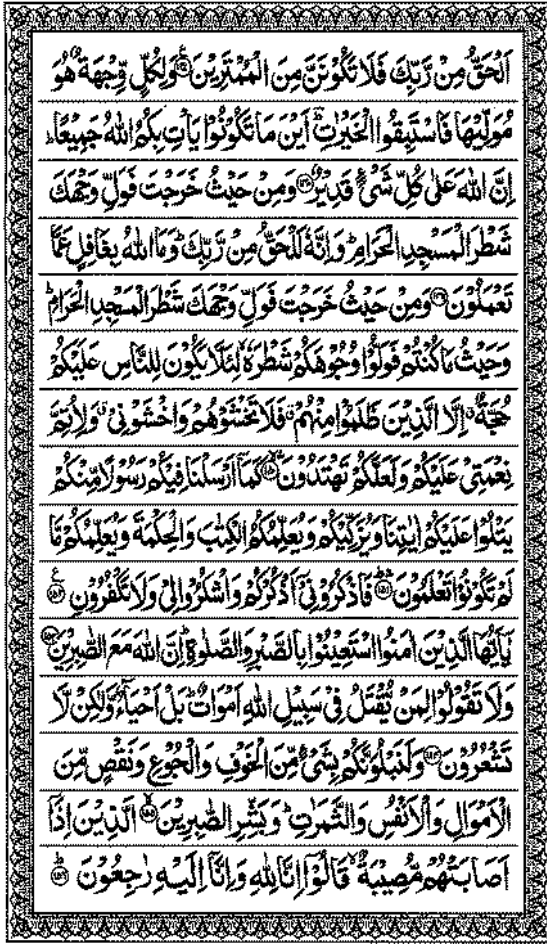 اَلْحَقُّ مِنْ رَّبِّكَ فَلَا تَكُوْنَنَّ مِنَ الْمُمْتَرِيْنَ ﴿۱۴۷﴾ وَلِكُلٍّ وِّجْهَةٌ هُوَ
مُوَلِّيْهَا فَاسْتَبِقُوا الْخَيْرٰتِ ؕ اَيْنَ مَا تَكُوْنُوْا يَاْتِ بِكُمُ اللّٰهُ جَمِيْعًا ؕ
اِنَّ اللّٰهَ عَلٰى كُلِّ شَيْءٍ قَدِيْرٌ ﴿۱۴۸﴾ وَمِنْ حَيْثُ خَرَجْتَ فَوَلِّ وَجْهَكَ
شَطْرَ الْمَسْجِدِ الْحَرَامِ ؕ وَاِنَّهٗ لَلْحَقُّ مِنْ رَّبِّكَ ؕ وَمَا اللّٰهُ بِغَافِلٍ عَمَّا
تَعْمَلُوْنَ ﴿۱۴۹﴾ وَمِنْ حَيْثُ خَرَجْتَ فَوَلِّ وَجْهَكَ شَطْرَ الْمَسْجِدِ الْحَرَامِ ؕ
وَحَيْثُ مَا كُنْتُمْ فَوَلُّوْا وُجُوْهَكُمْ شَطْرَهٗ ۙ لِئَلَّا يَكُوْنَ لِلنَّاسِ عَلَيْكُمْ
حُجَّةٌ ۙ اِلَّا الَّذِيْنَ ظَلَمُوْا مِنْهُمْ ۗ فَلَا تَخْشَوْهُمْ وَاخْشَوْنِيْ ۗ وَلِاُتِمَّ
نِعْمَتِيْ عَلَيْكُمْ وَلَعَلَّكُمْ تَهْتَدُوْنَ ﴿۱۵۰﴾ كَمَاۤ اَرْسَلْنَا فِيْكُمْ رَسُوْلًا مِّنْكُمْ
يَتْلُوْا عَلَيْكُمْ اٰيٰتِنَا وَيُزَكِّيْكُمْ وَيُعَلِّمُكُمُ الْكِتٰبَ وَالْحِكْمَةَ وَيُعَلِّمُكُمْ مَّا
لَمْ تَكُوْنُوْا تَعْلَمُوْنَ ﴿۱۵۱﴾ فَاذْكُرُوْنِيْۤ اَذْكُرْكُمْ وَاشْكُرُوْا لِيْ وَلَا تَكْفُرُوْنِ ﴿۱۵۲﴾
يٰۤاَيُّهَا الَّذِيْنَ اٰمَنُوا اسْتَعِيْنُوْا بِالصَّبْرِ وَالصَّلٰوةِ ؕ اِنَّ اللّٰهَ مَعَ الصّٰبِرِيْنَ ﴿۱۵۳﴾
وَلَا تَقُوْلُوْا لِمَنْ يُّقْتَلُ فِيْ سَبِيْلِ اللّٰهِ اَمْوَاتٌ ؕ بَلْ اَحْيَآءٌ وَّلٰكِنْ لَّا
تَشْعُرُوْنَ ﴿۱۵۴﴾ وَلَنَبْلُوَنَّكُمْ بِشَيْءٍ مِّنَ الْخَوْفِ وَالْجُوْعِ وَنَقْصٍ مِّنَ
الْاَمْوَالِ وَالْاَنْفُسِ وَالثَّمَرٰتِ ؕ وَبَشِّرِ الصّٰبِرِيْنَ ﴿۱۵۵﴾ الَّذِيْنَ اِذَاۤ
اَصَابَتْهُمْ مُّصِيْبَةٌ ۙ قَالُوْۤا اِنَّا لِلّٰهِ وَاِنَّاۤ اِلَيْهِ رٰجِعُوْنَ ﴿۱۵۶﴾